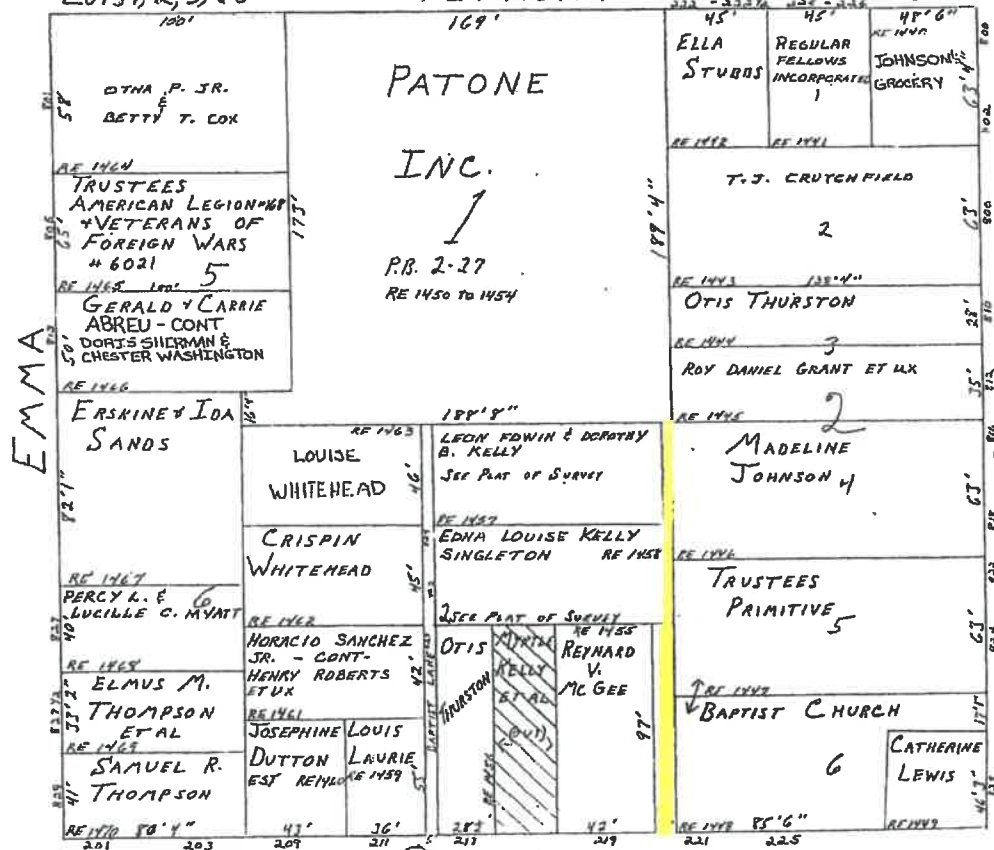 100'
169'
45'
45'
48'6"
801
58'
OTHA P. JR.
&
BETTY T. COX
RE 1464
TRUSTEES
AMERICAN LEGION #168
& VETERANS OF
FOREIGN WARS
# 6021
5
65'
RE 1465 100'
GERALD & CARRIE
ABREU - CONT
DORIS SHERMAN &
CHESTER WASHINGTON
50'
RE 1466
EMMA
ERSKINE & IDA
SANDS
82'1"
RE 1467
PERCY L. &
LUCILLE C. MYATT
6
40'
RE 1468
ELMUS M.
THOMPSON
ET AL
33'2"
RE 1469
SAMUEL R.
THOMPSON
41'
829
RE 1470 80'4"
201
203
PATONE
INC.
1
P.B. 2-27
RE 1450 TO 1454
173'
189'4"
188'8"
16'4"
RE 1463
LOUISE
WHITEHEAD
46'
CRISPIN
WHITEHEAD
45'
RE 1462
HORACIO SANCHEZ
JR. - CONT-
HENRY ROBERTS
ET UX
42'
RE 1461
JOSEPHINE
DUTTON
EST RE 1460
LOUIS
LAURIE
RE 1459
55'
43'
36'
209
211
BAPTIST LANE
LEON EDWIN & DOROTHY
B. KELLY
SEE PLAT OF SURVEY
RE 1457
EDNA LOUISE KELLY
SINGLETON RE 1458
SEE PLAT OF SURVEY
OTIS
THURSTON
RE 1456
MYRTLE
KELLY
ET AL
(OUT)
RE 1455
REYNARD
V.
MC GEE
97'
42'
217
219
ELLA
STUBBS
RE 1442
REGULAR
FELLOWS
INCORPORATED
1
RE 1441
RE 1440
JOHNSON'S
GROCERY
63'4"
800
802
T.J. CRUTCHFIELD
2
63'
806
RE 1443 138'4"
OTIS THURSTON
28'
810
RE 1444
3
ROY DANIEL GRANT ET UX
35'
812
RE 1445
2
MADELINE
JOHNSON 4
63'
816
818
RE 1446
TRUSTEES
PRIMITIVE
5
63'
822
RE 1447
BAPTIST CHURCH
6
CATHERINE
LEWIS
46'3"
RE 1448 85'6"
RE 1449
221
225